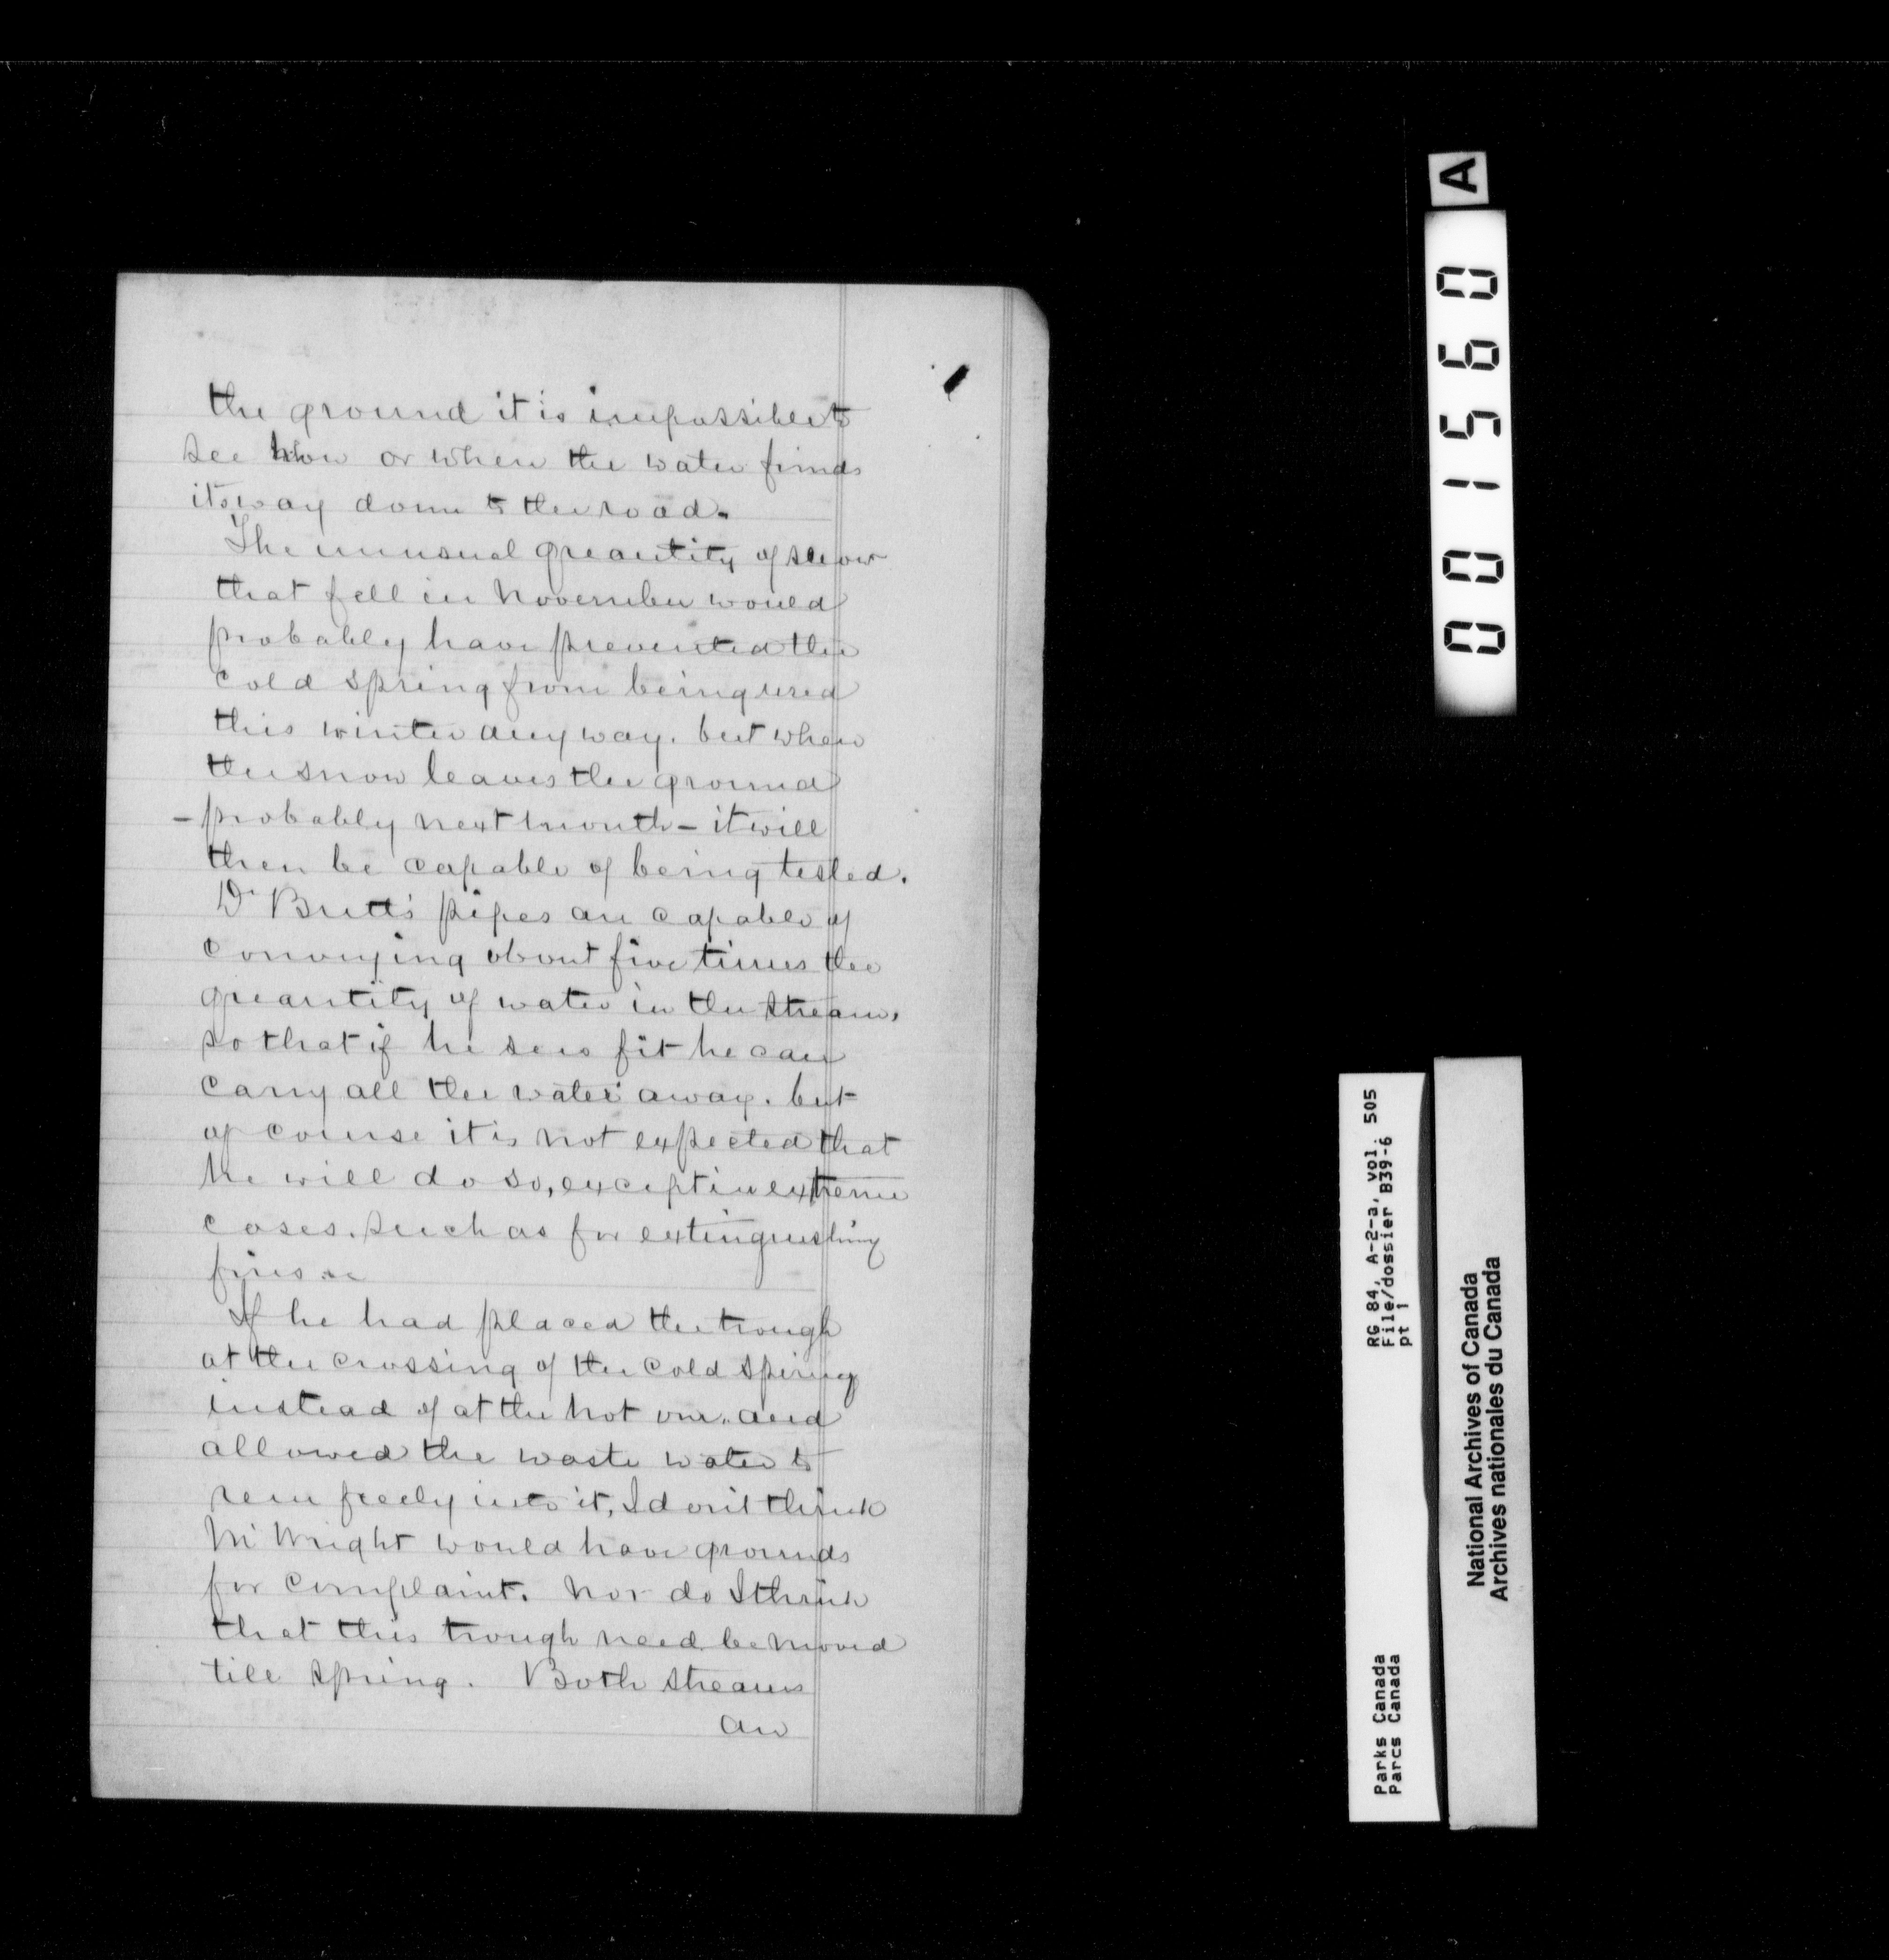 the ground it is impossible to
see how or where the water finds
its way down to the road.
The unusual quantity of snow
that fell in November would
probably have prevented the
cold spring from being used
this winter any way. but when
the snow leaves the ground
- probably next month - it will
then be capable of being tested.
Dr Brett's pipes are capable of
conveying about five times the
quantity of water in the stream,
so that if he sees fit he can
carry all the water away. but
of course it is not expected that
he will do so, except in extreme
cases. such as for extinguishing
fires &c
If he had placed the trough
at the crossing of the cold spring
instead of at the hot one. and
allowed the waste water to
run freely into it, I don't think
Mr Wright would have grounds
for complaint. Nor do I think
that this trough need be moved
till spring. Both streams
are
A
001560
RG 84, A-2-a, vol. 505
File/dossier B39-6
pt 1
Parks Canada
Parcs Canada
National Archives of Canada
Archives nationales du Canada